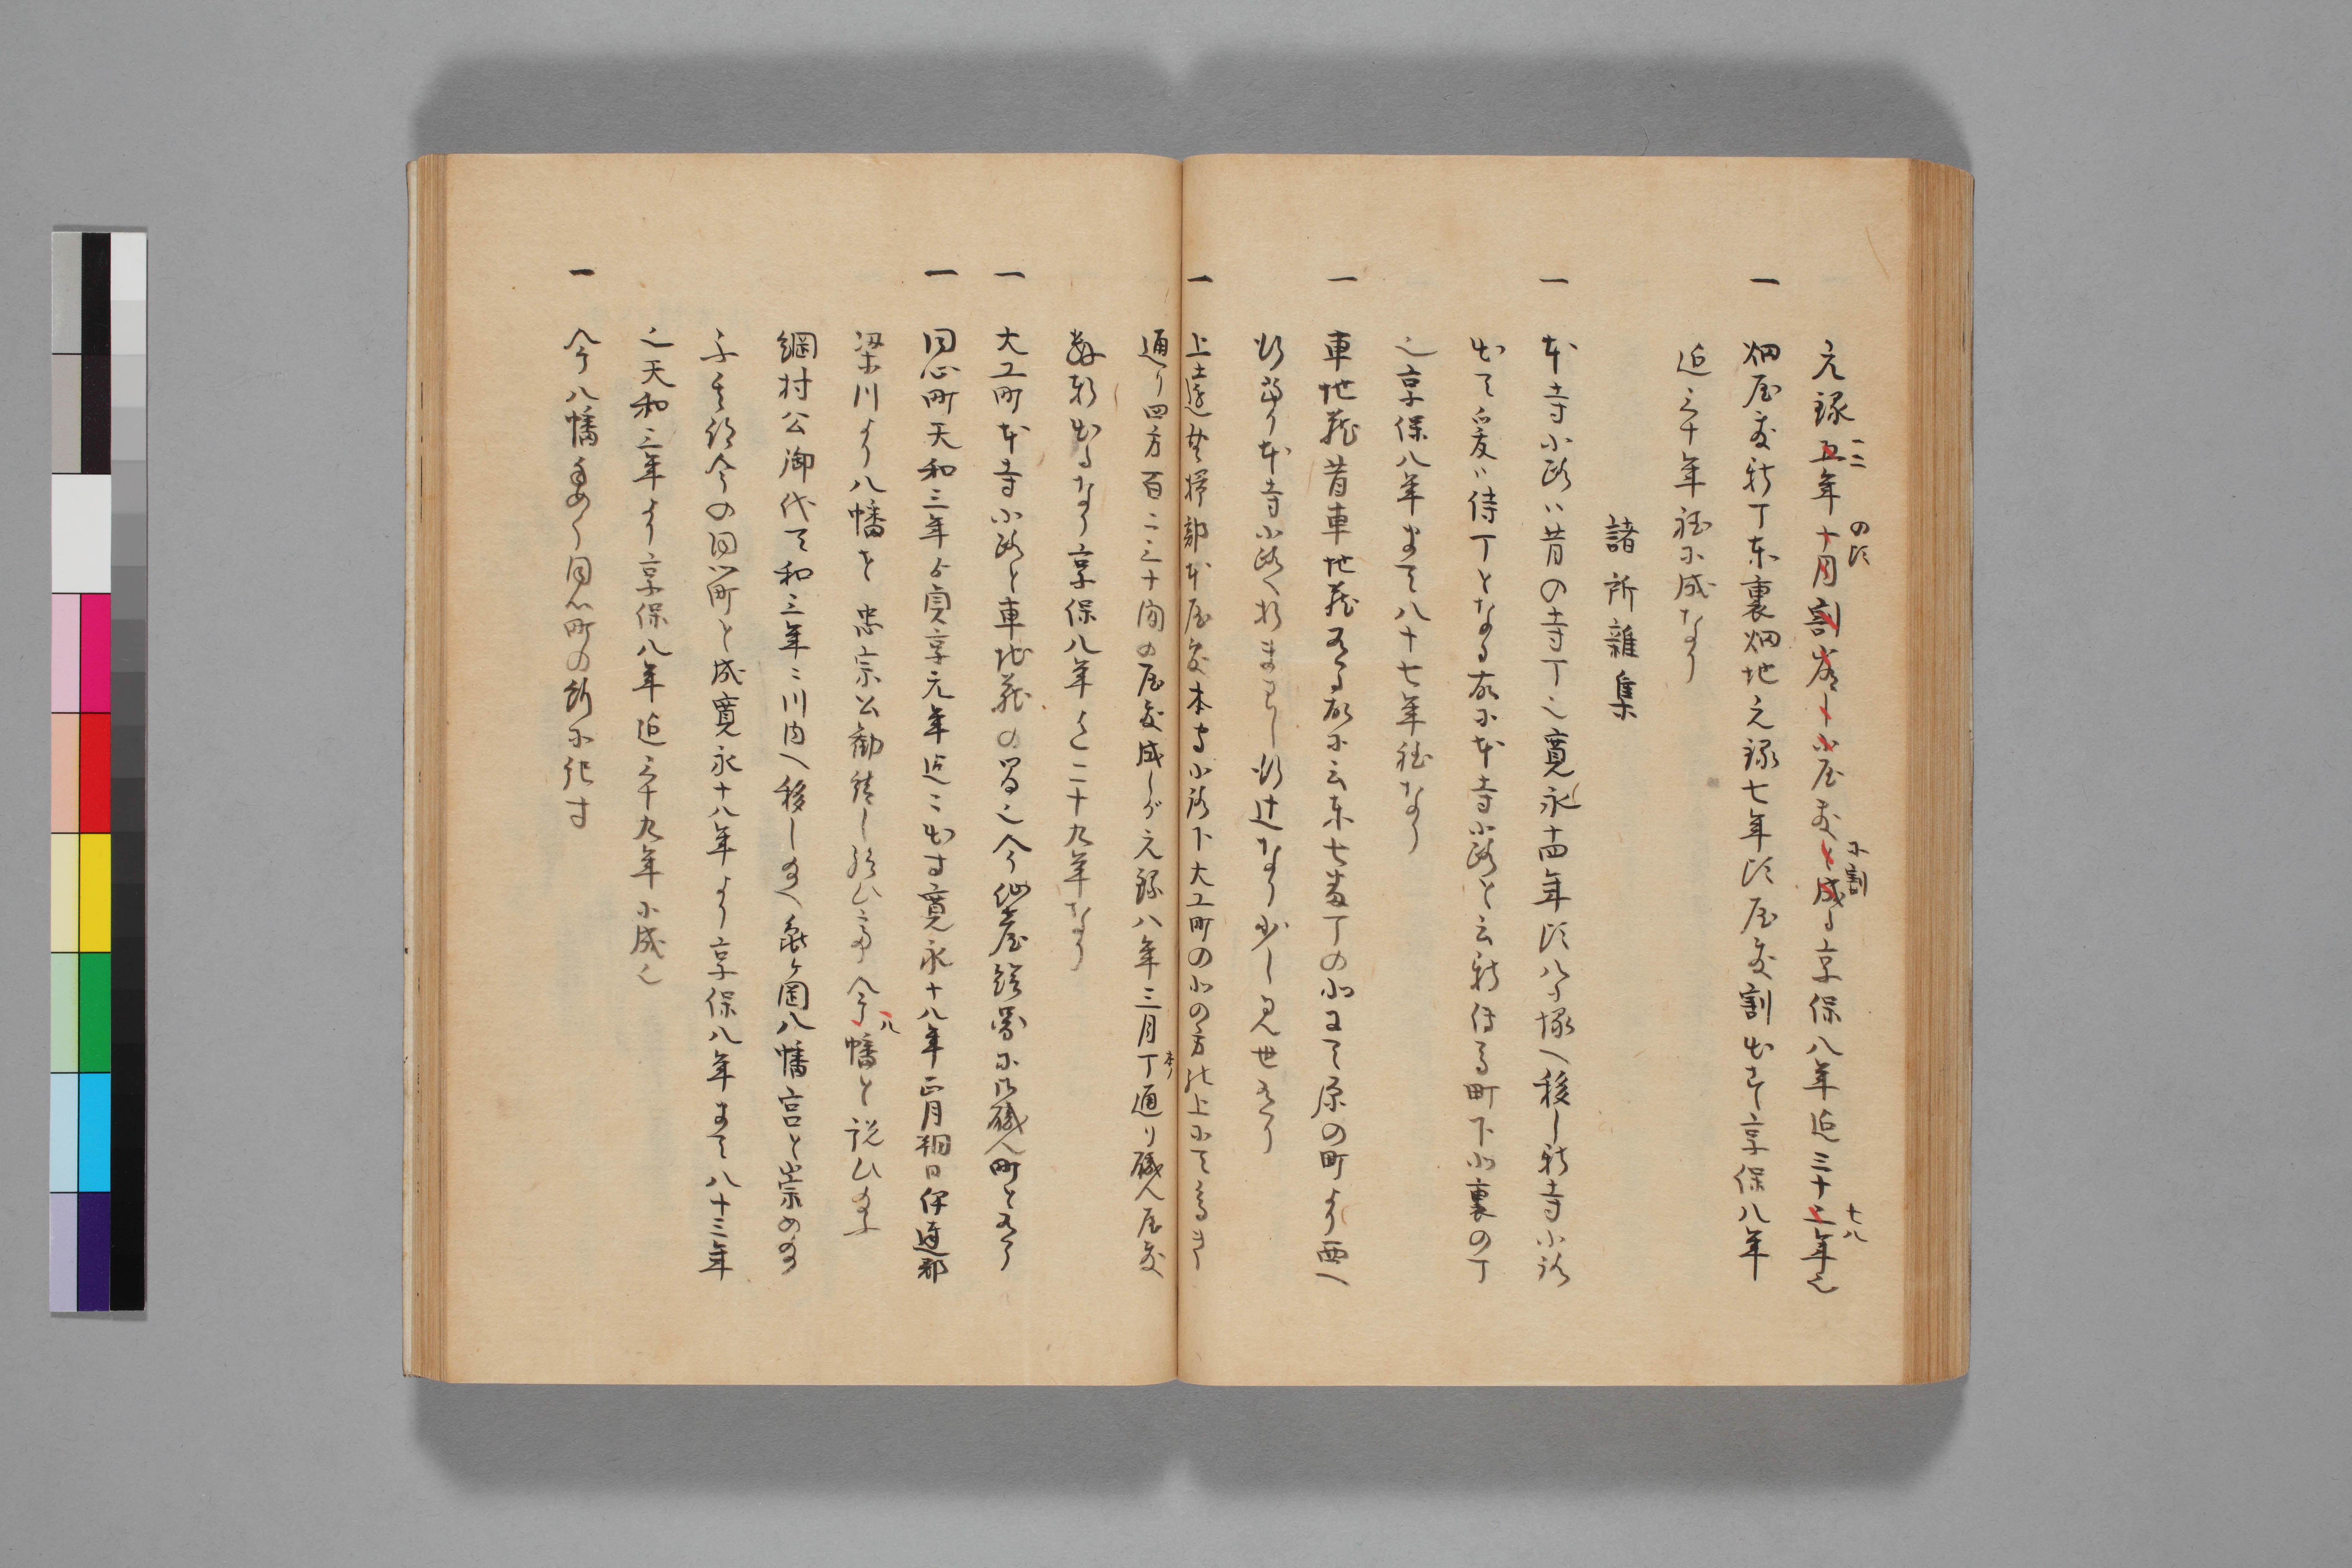 元録五年十月割出し小屋敷と成る享保八年迄三十二年也
二三
の頃
に割
七八
一 畑屋敷新丁東裏畑地元録七年頃屋敷割出す享保八年
迄三十年程に成なり
諸所雑集
一 本寺小路ハ昔の寺丁也寛永十四年頃八ツ塚へ移し新寺小路
出て爰ハ侍丁となる故に本寺小路と云新伝馬町下北裏の丁
也享保八年まて八十七年程なり
一 車地蔵昔車地蔵有る故に云東七番丁の北にて原の町より西へ
本寺小路へ
辻なり少し見世有り
一 上遠野掃部本屋敷本寺小路下大工町の北の方北上にて
通り四方百二三十間の屋敷成しが元録八年三月丁通り職人屋敷
本ノ
新出るなり享保八年迄二十九年なり
一 大工町本寺小路と車地蔵の間也今仙台絵図に御職人町と有り
一 同心町天和三年より貞享元年迄ニ出す寛永十八年正月朔日伊達郡
梁川より八幡を 忠宗公勧請し給ひ 今幡と説ひ
八
綱村公御代天和三年ニ川内へ移し 亀ヶ岡八幡宮と崇め
今の同心町と成寛永十八年より享保八年まて八十三年
也天和三年より享保八年迄四十九年に成也
一 今八幡 同心町の所に記す